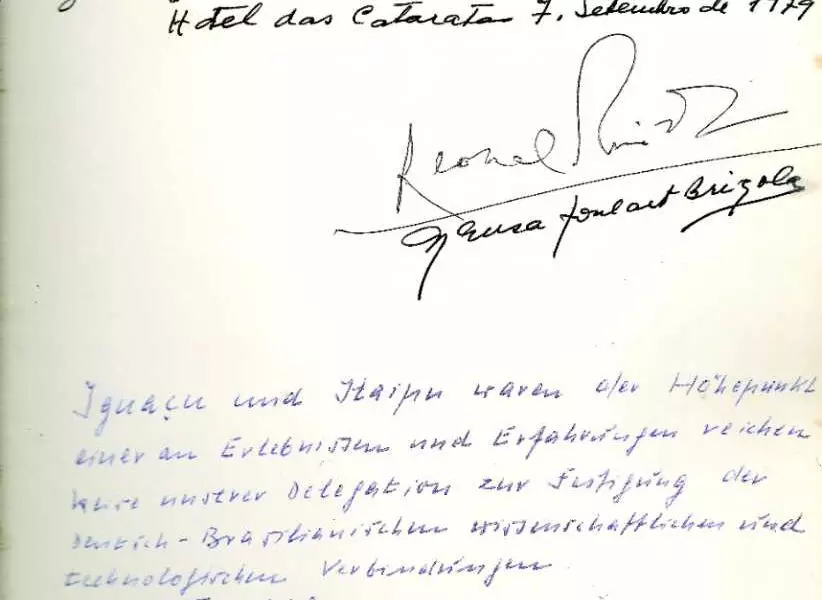 Hotel das Cataratas 7. Setembro de 1979
Leonel Brizola
Neusa Goulart Brizola
Iguaçu und Itaipu waren der Höhepunkt
einer an Erlebnissen und Erfahrungen reichen
Reise unsrer Delegation zur Festigung der
Deutsch-Brasilianischen wissenschaftlichen und
technologischen Verbindungen